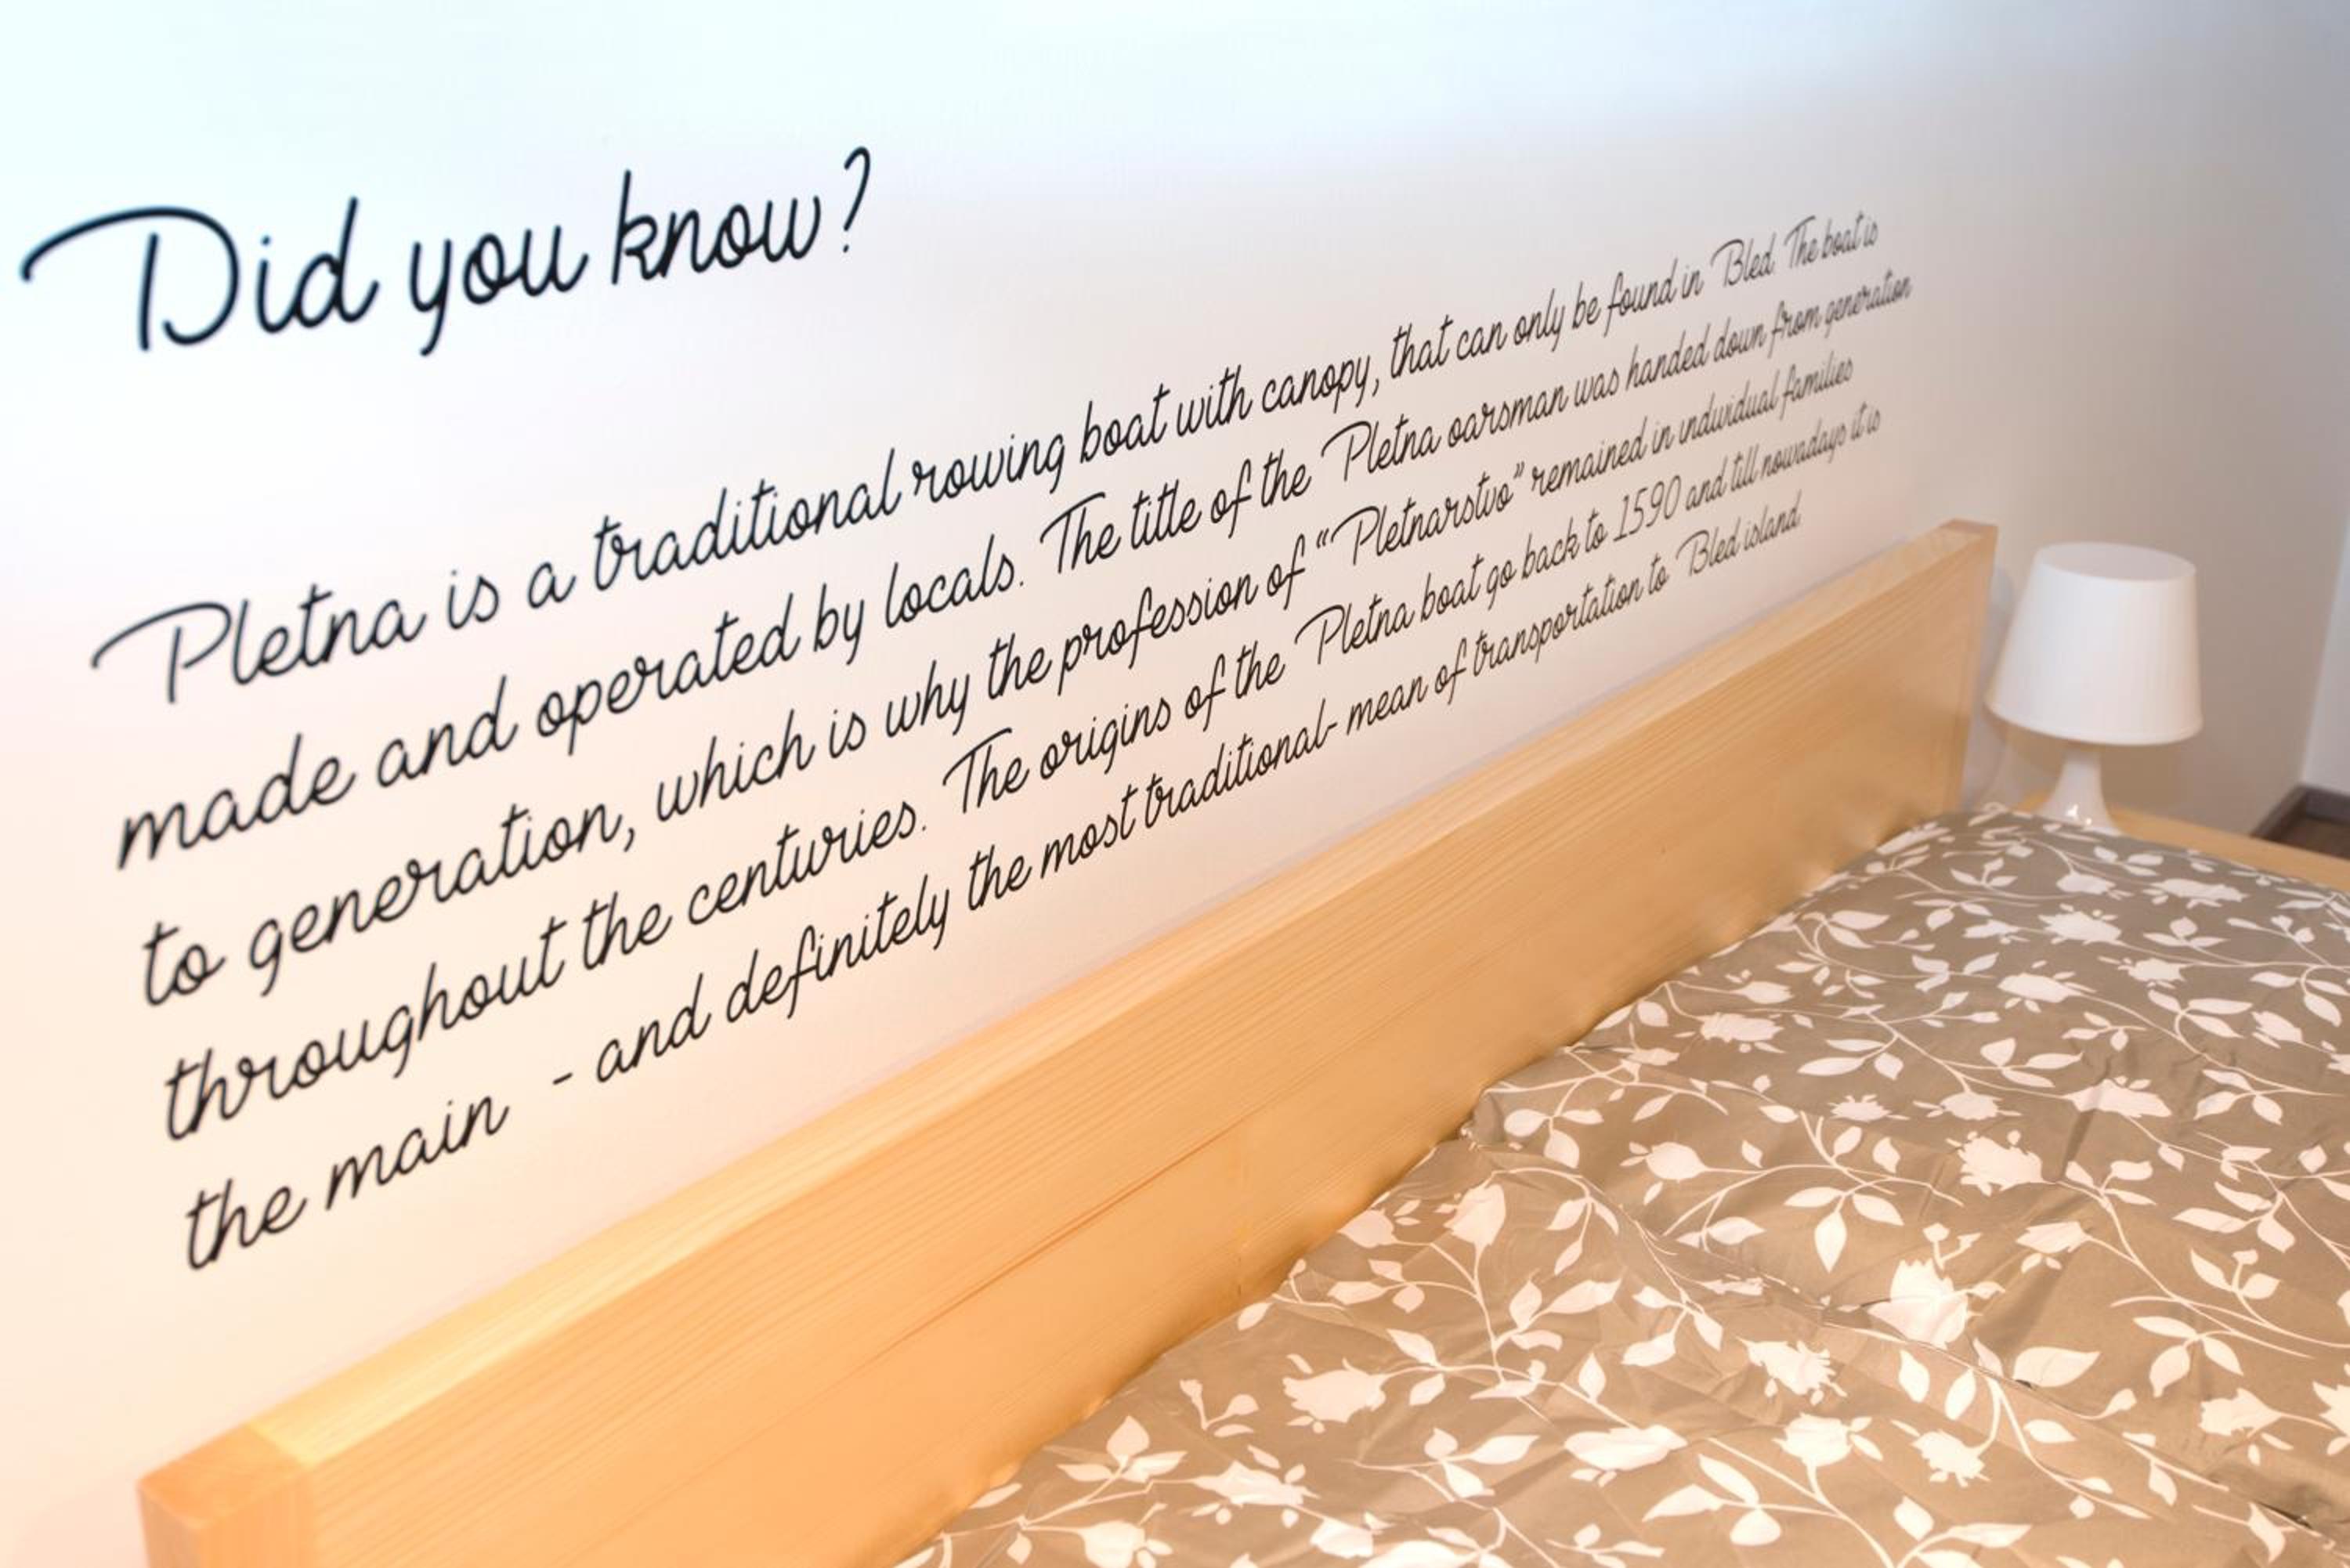 Did you know?
Pletna is a traditional rowing boat with canopy, that can only be found in Bled. The boat is
made and operated by locals. The title of the Pletna oarsman was handed down from generation
to generation, which is why the profession of "Pletnarstvo" remained in individual families
throughout the centuries. The origins of the Pletna boat go back to 1590 and till nowadays it is
the main - and definitely the most traditional- mean of transportation to Bled island.